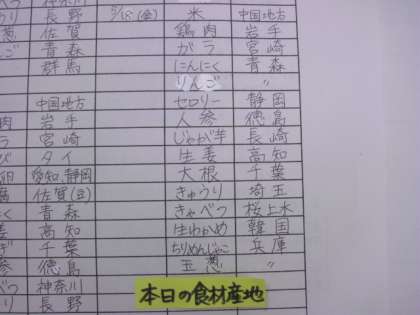 神奈川
うり 長野 5/18(金) 米 中国地方
葱 佐賀 鶏肉 岩手
青森 ガラ 宮崎
んご 群馬 にんにく 青森
りんご 〃
中国地方 セロリー 静岡
肉 岩手 人参 徳島
宮崎 じゃが芋 長崎
タイ 生姜 高知
卵 愛知、静岡 大根 千葉
腐 佐賀(豆) きゅうり 埼玉
く 青森 きゃべつ 桜上水
姜 高知 生わかめ 韓国
ぎ 千葉 ちりめんじゃこ 兵庫
参 徳島 玉葱 〃
べつ 神奈川
り 長野
本日の食材産地